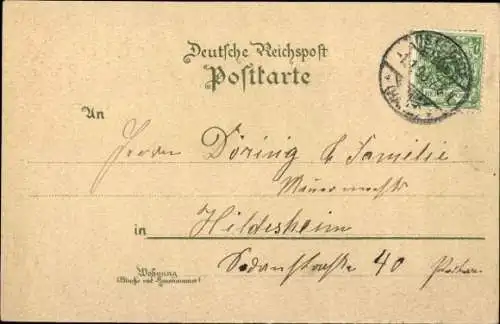 Deutsche Reichspost
Postkarte
An
Herrn Döring & Familie
Maurermeister
in Hildesheim
Wohnung
(Straße und Hausnummer)
Sedanstraße 40